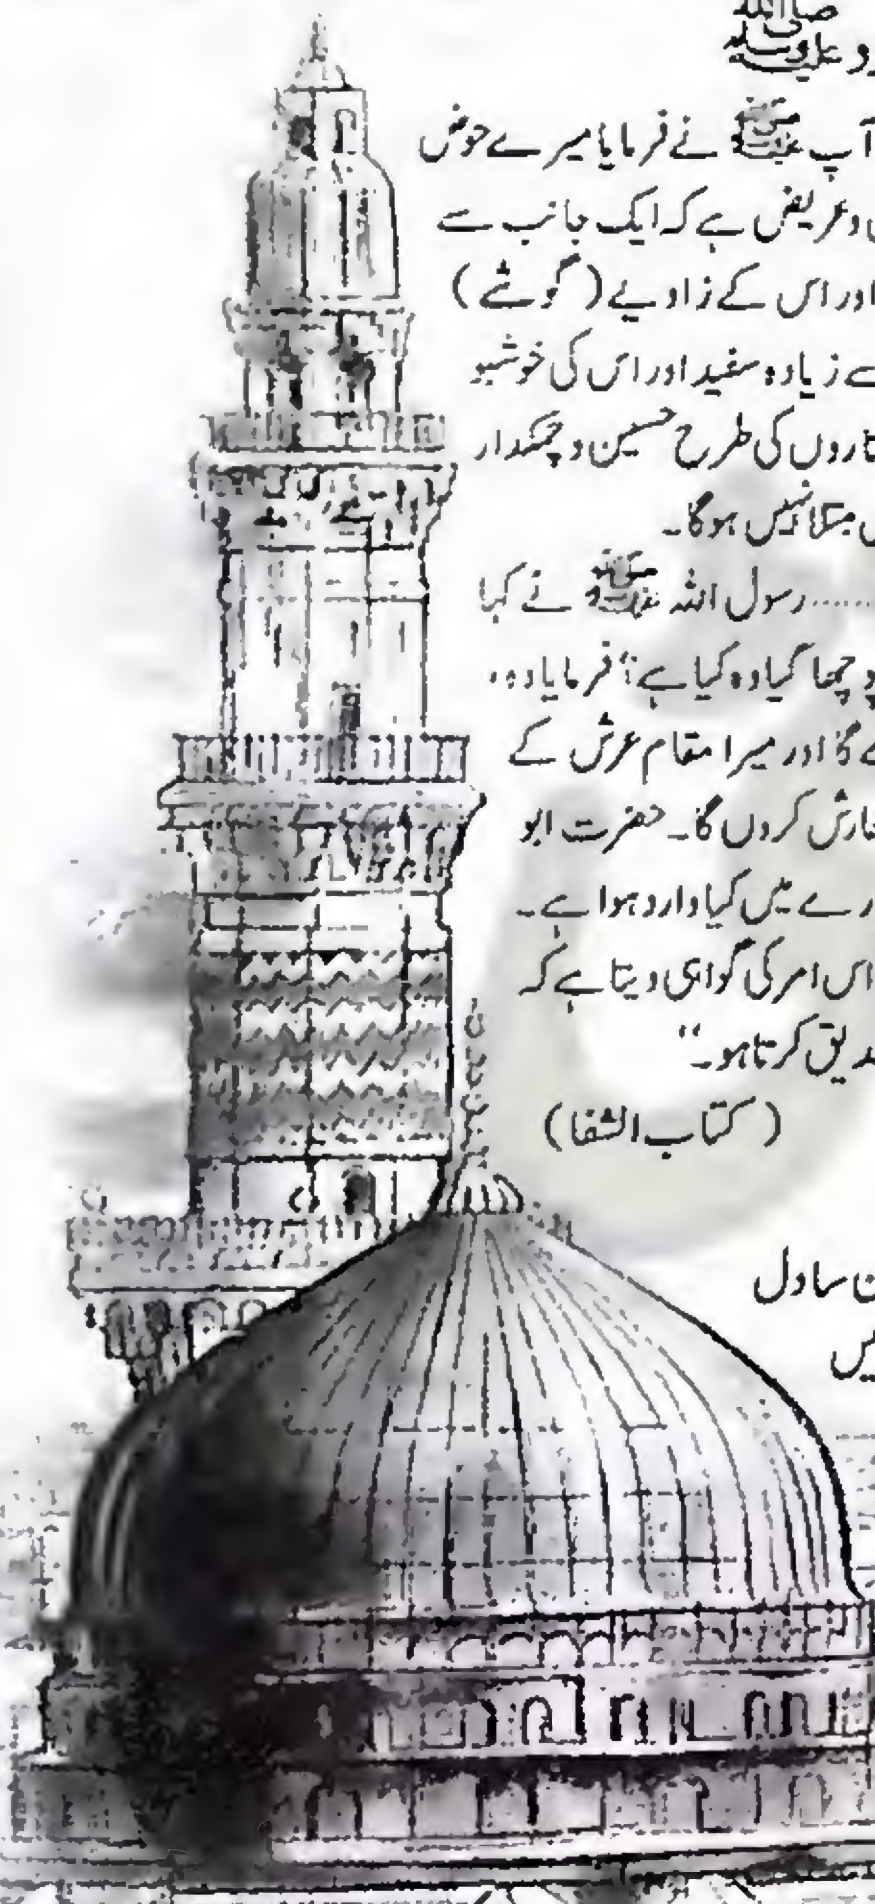 صلی اللہ علیہ وسلم
آپ ﷺ نے فرمایا میرے حوض
وعریض ہے کہ ایک جانب سے
اور اس کے زاویے (گوشے)
زیادہ سفید اور اس کی خوشبو
تاروں کی طرح حسین و چمکدار
مبتلا نہیں ہوگا۔
......رسول اللہ ﷺ نے کہا
پوچھا گیا وہ کیا ہے؟ فرمایا وہ،
گا اور میرا مقام عرش کے
کروں گا۔ حضرت ابو
میں کیا وارد ہوا ہے۔
اس امر کی گواہی دیتا ہے کہ
کرتا ہو۔“
(کتاب الشفا)
سا دل